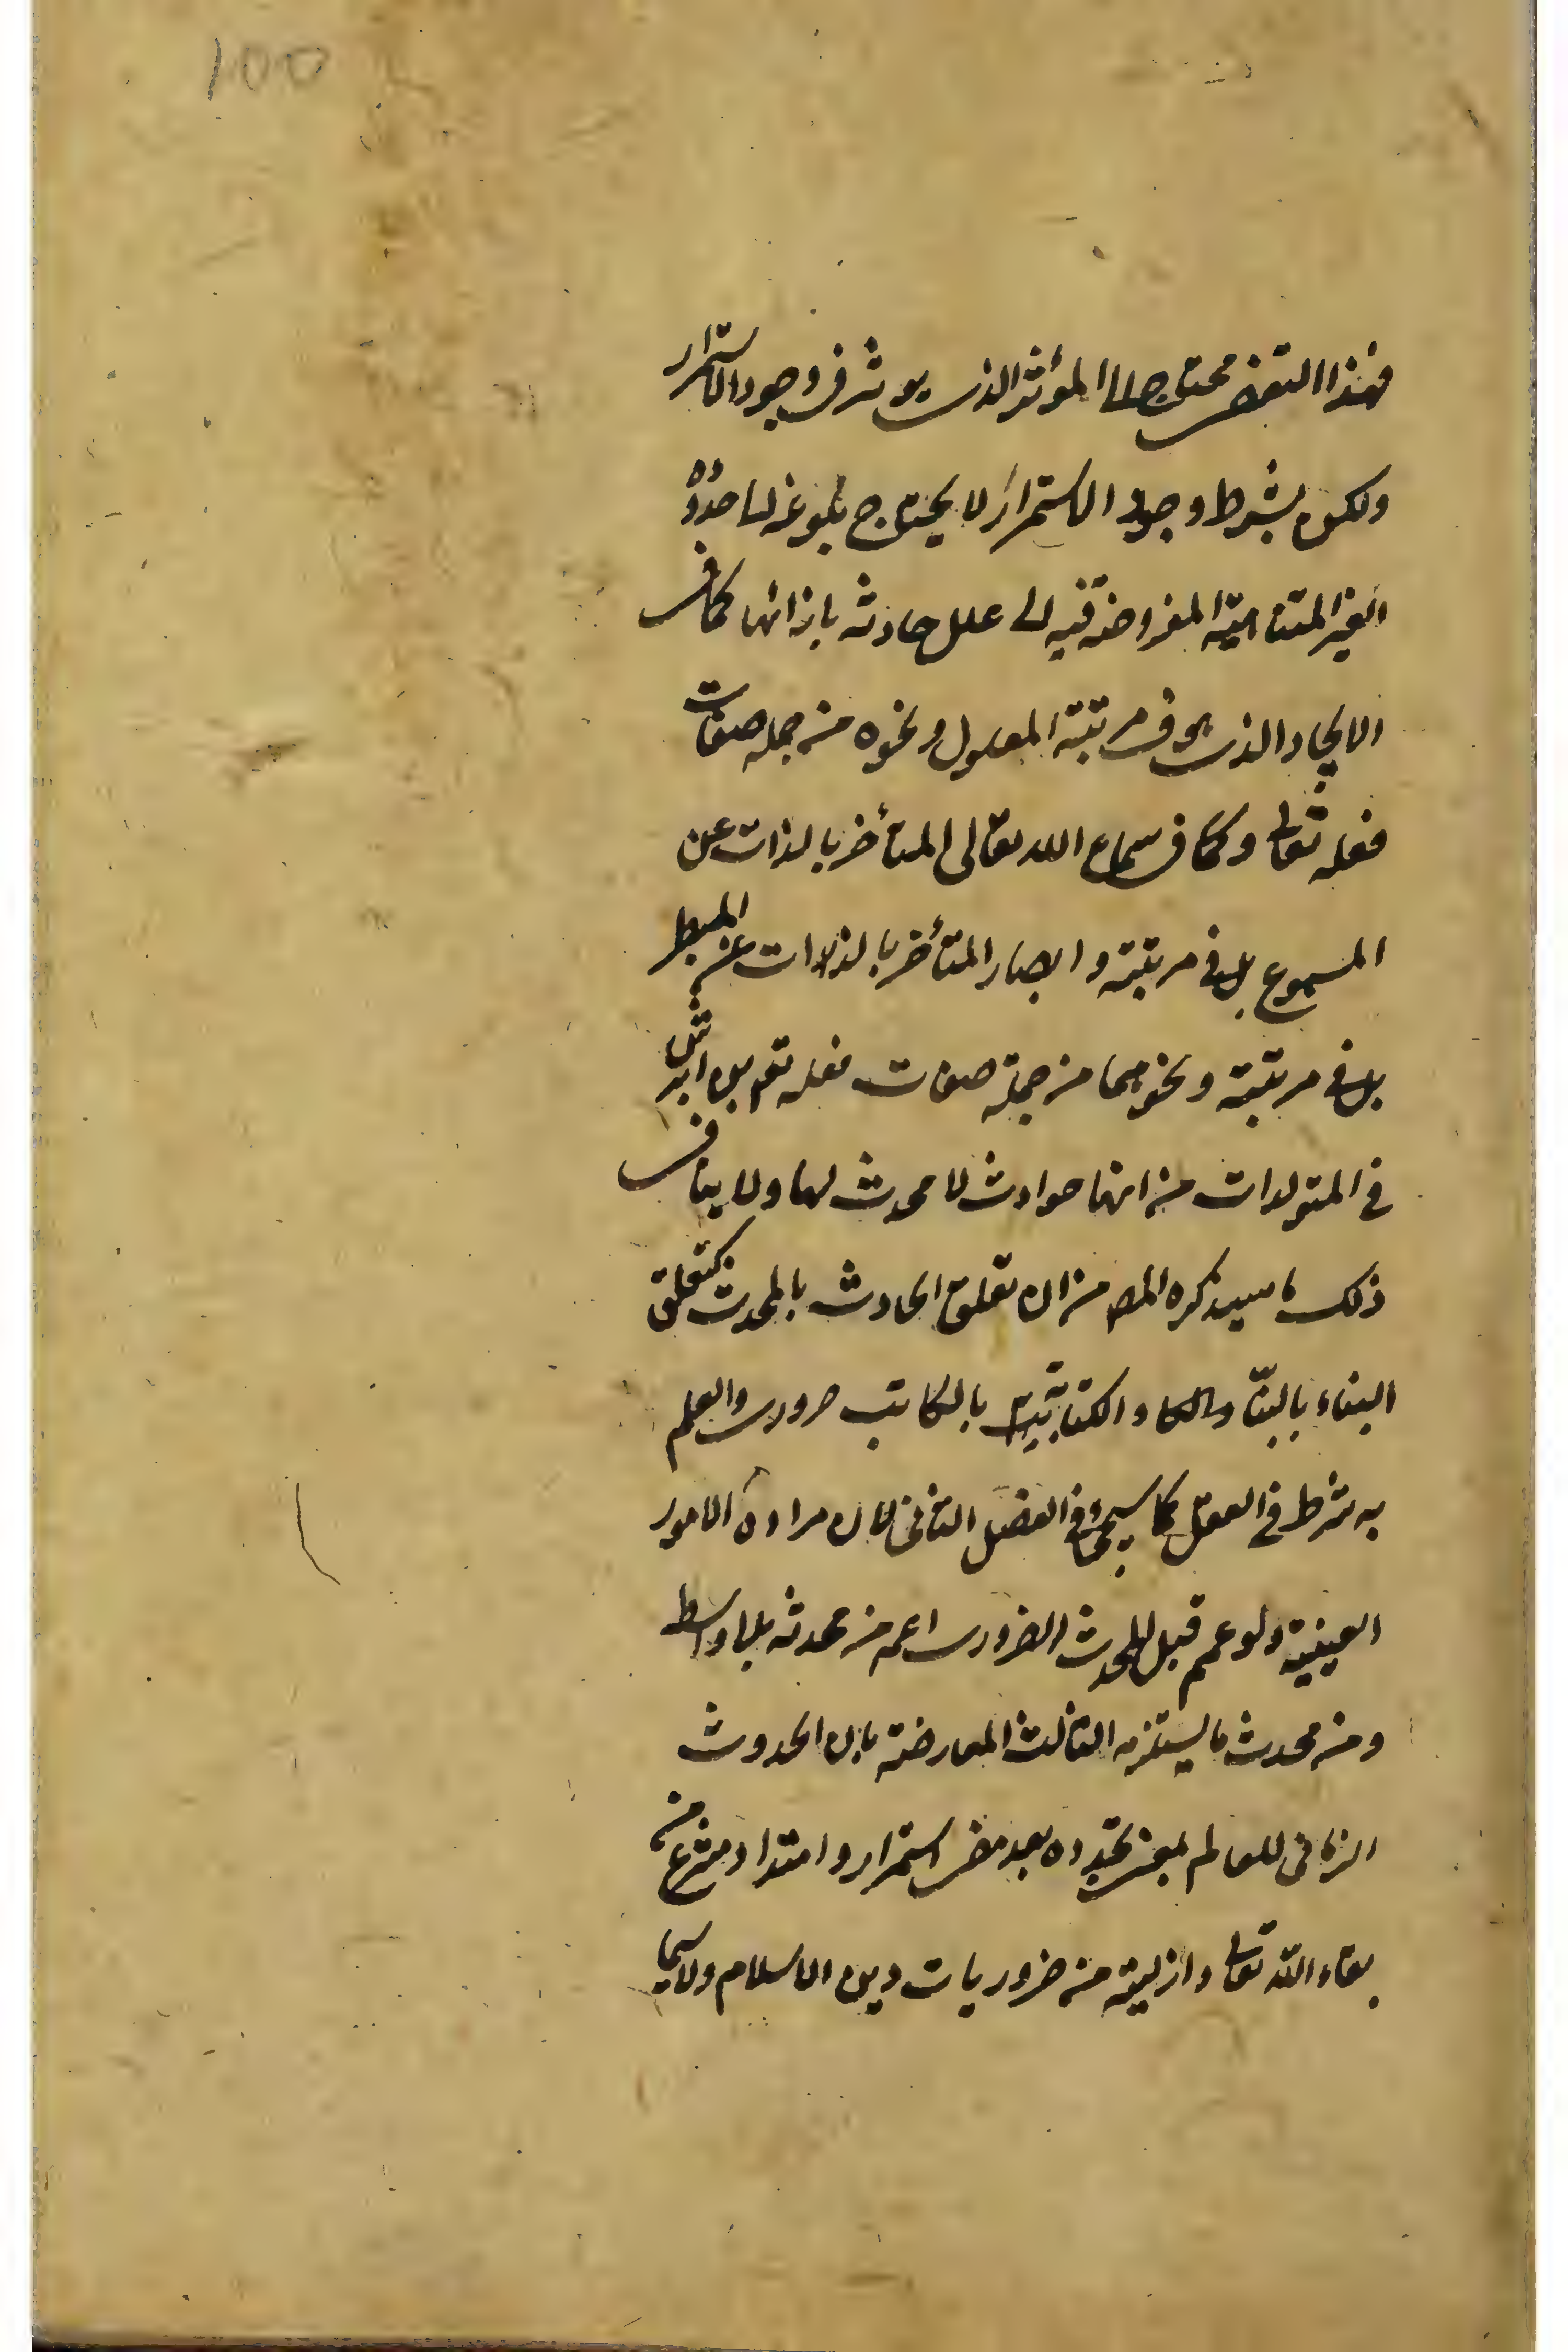 100
فهذا التقضى محتاج الى المؤثر الذى يوثر فى وجود الاستمرار
ولكن بشرط وجود الاستمرار لا يحتاج بلوغه لى حدوده
الغير المتناهية المفروضة فيه الى علل حادثه بازائها كما فى
الايجاد الذى هو فى مرتبة المعلول ونحوه من جمله صفات
فعله تعالى وكما فى سماع الله تعالى المتأخر بالذات عن
المسموع بل فى مرتبته وابصار المتأخر بالذات عن المبصر
بل فى مرتبته ونحوهما من جملة صفات فعله تعم
فى المتولدات من انها حوادث لا محدث لها ولا ينافى
ذلك ما سيذكره المصـ من ان تعلق الحادث بالمحدث كتعلق
البناء بالبنّا والكتابة بالكاتب ضرورى والعلم
به شرط فى العقل كما سيجئ فى الفصل الثانى لان مراده الامور
العينية ولو عمم قبل المحدث الضرورى اعم من محدثه بلا واسطه
ومن محدث ما يستلزمه الثالث المعارضة بان الحدوث
الزمانى للعالم بمعنى تجدده بعد مضى استمرار وامتداد منتزع من
بقاء الله تعالى وازليته من ضروريات دين الاسلام ولا سيما